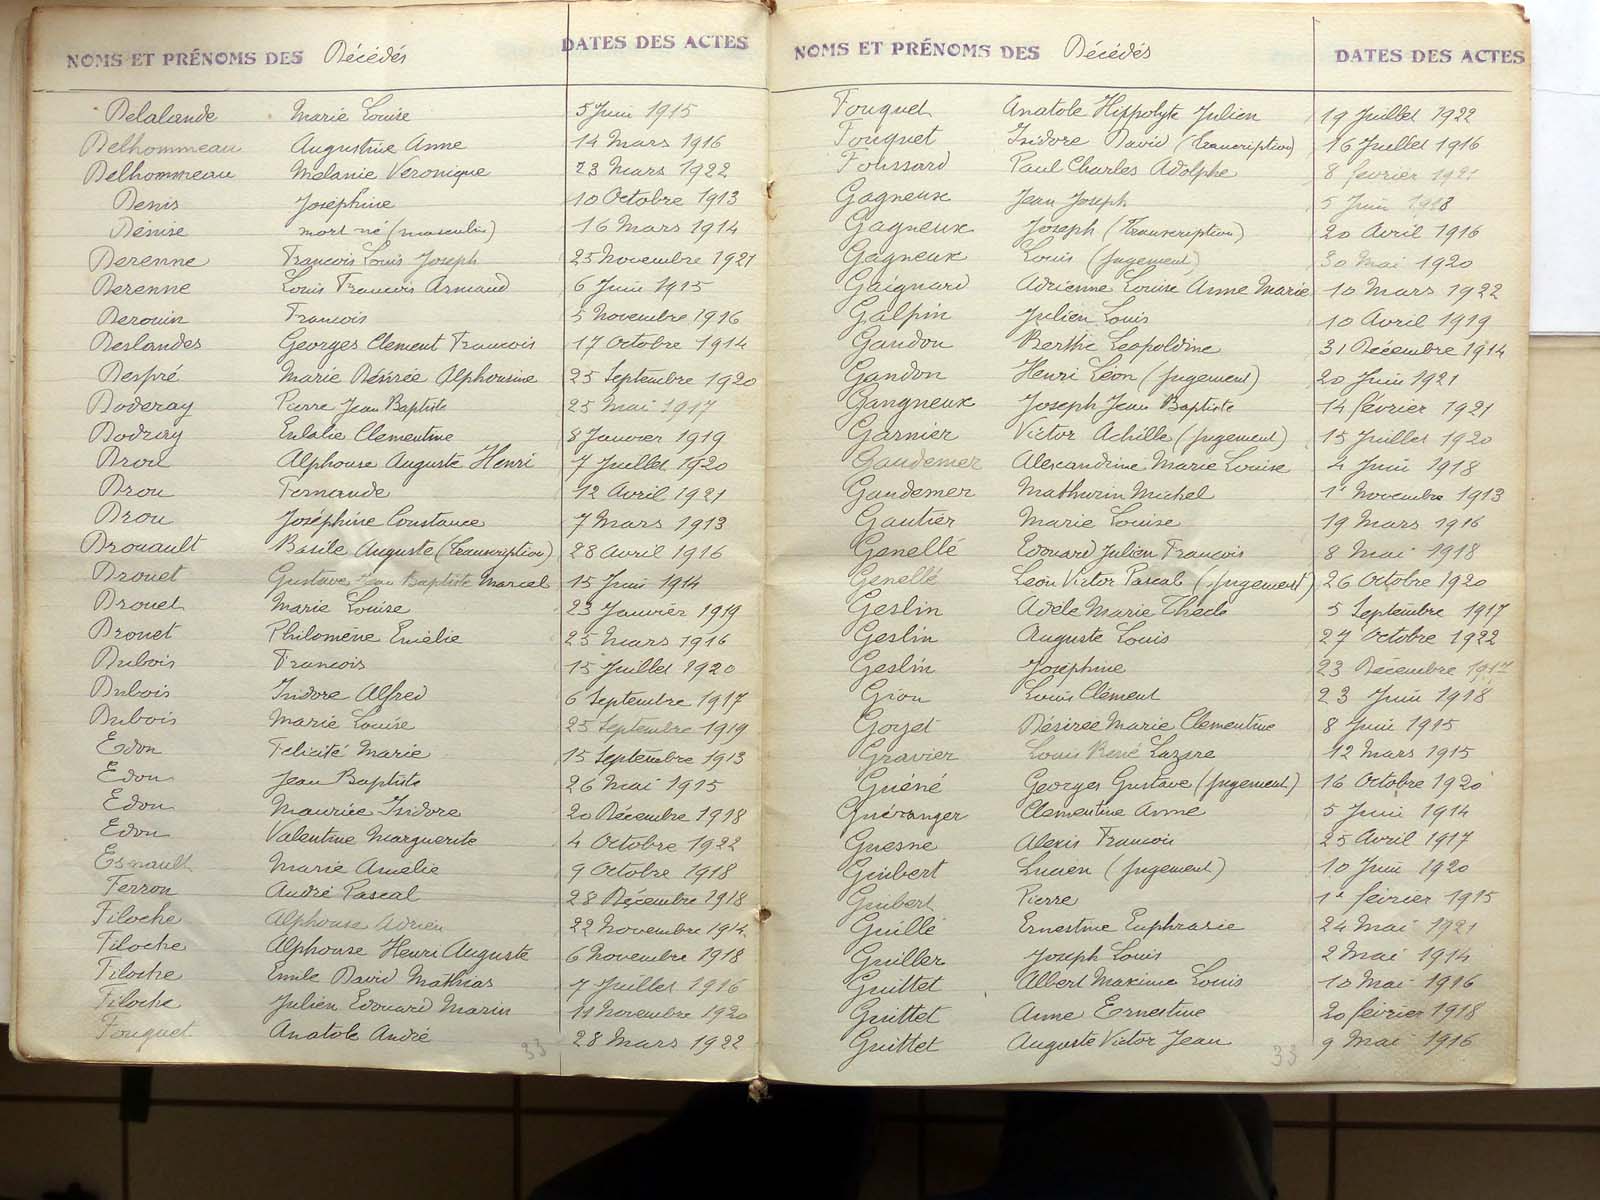 NOMS ET PRÉNOMS DES Décédés DATES DES ACTES
Delalande Marie Louise 5 Juin 1915
Delhommeau Augustine Anne 14 Mars 1916
Delhommeau Mélanie Veronique 23 Mars 1922
Denis Joséphine 10 Octobre 1913
Dénise mort-né (masculin) 16 Mars 1914
Derenne Francois Louis Joseph 25 Novembre 1921
Derenne Louis Francois Armand 6 Juin 1915
Derouin Francois 5 Novembre 1916
Deslandes Georges Clement Francois 17 Octobre 1914
Despré Marie Désirée Alphonsine 25 Septembre 1920
Doderay Pierre Jean Baptiste 25 Mai 1917
Eulalie Clementine 8 Janvier 1919
Drou Alphonse Auguste Henri 7 Juillet 1920
Drou Fernande 12 Avril 1921
Drou Joséphine Constance 7 Mars 1913
Drouault Basile Auguste (transcription) 28 Avril 1916
Drouet Gustave Jean Baptiste Marcel 15 Juin 1914
Drouet Marie Louise 23 Janvier 1919
Drouet Philomène Emélie 25 Mars 1916
Dubois Francois 15 Juillet 1920
Dubois Isidore Alfred 6 Septembre 1917
Dubois Marie Louise 25 Septembre 1919
Edon Felicité Marie 15 Septembre 1913
Edon Jean Baptiste 26 Mai 1915
Edon Maurice Isidore 20 Décembre 1918
Edon Valentine Marguerite 4 Octobre 1922
Esnault Marie Amélie 9 Octobre 1918
Ferron André Pascal 28 Décembre 1918
Filoche Alphonse Adrien 22 Novembre 1914
Filoche Alphonse Henri Auguste 6 Novembre 1918
Filoche Emile David Mathias 7 Juillet 1916
Filoche Julien Edouard Marin 11 Novembre 1920
Fouquet Anatole André 28 Mars 1922
33
NOMS ET PRÉNOMS DES Décédés DATES DES ACTES
Fouquet Anatole Hippolyte Julien 19 Juillet 1922
Fouquet Isidore David (transcription) 16 Juillet 1916
Foussard Paul Charles Adolphe 8 février 1921
Gagneux Jean Joseph 5 Juin 1918
Gagneux Joseph (Transcription) 20 Avril 1916
Gagneux Louis (jugement) 30 Mai 1920
Gaignard Adrienne Louise Anne Marie 10 Mars 1922
Galpin Julien Louis 10 Avril 1919
Gandon Berthe Leopoldine 31 Décembre 1914
Gandon Henri Léon (jugement) 20 Juin 1921
Gangneux Joseph Jean Baptiste 14 février 1921
Garnier Victor Achille (jugement) 15 Juillet 1920
Gaudemer Alexandrine Marie Louise 4 Juin 1918
Gaudemer Mathurin Michel 1er Novembre 1913
Gautier Marie Louise 19 Mars 1916
Genellé Edouard Julien Francois 8 Mai 1918
Genellé Leon Victor Pascal (jugement) 26 Octobre 1920
Geslin Adèle Marie Thecle 5 Septembre 1917
Geslin Auguste Louis 27 Octobre 1922
Geslin Joséphine 23 Décembre 1917
Gion Louis Clément 23 Juin 1918
Goyet Désirée Marie Clementine 8 Juin 1915
Gravier Louis René Lazare 12 Mars 1915
Guéné Georges Gustave (jugement) 16 Octobre 1920
Guéranger Clementine Anne 5 Juin 1914
Guesne Alexis Francois 25 Avril 1917
Guibert Lucien (jugement) 10 Juin 1920
Guibert Pierre 1er février 1915
Guillé Ernestine Euphrasie 24 Mai 1921
Guiller Joseph Louis 2 Mai 1914
Guittet Albert Maxime Louis 10 Mai 1916
Guittet Anne Ernestine 20 février 1918
Guittet Auguste Victor Jean 9 Mai 1916
33